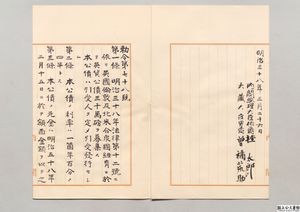 明治三十八年三月二十六日
内閣總理大臣伯爵桂太郎
大藏大臣男爵曾禰荒助
勅令第七十八號
第一條 明治三十八年法律第十二號ニ
依リ英國倫敦及北米合衆國紐育ニ於テ
英貨公債三千萬磅ヲ募集ス
本公債ハ引受人ヲシテ引受發行セシム
第二條 本公債ノ利率ハ一箇年百分ノ
四半トス
第三條 本公債ノ元金ハ明治五十八年
二月十五日ニ於テ額面金額ヲ以テ之